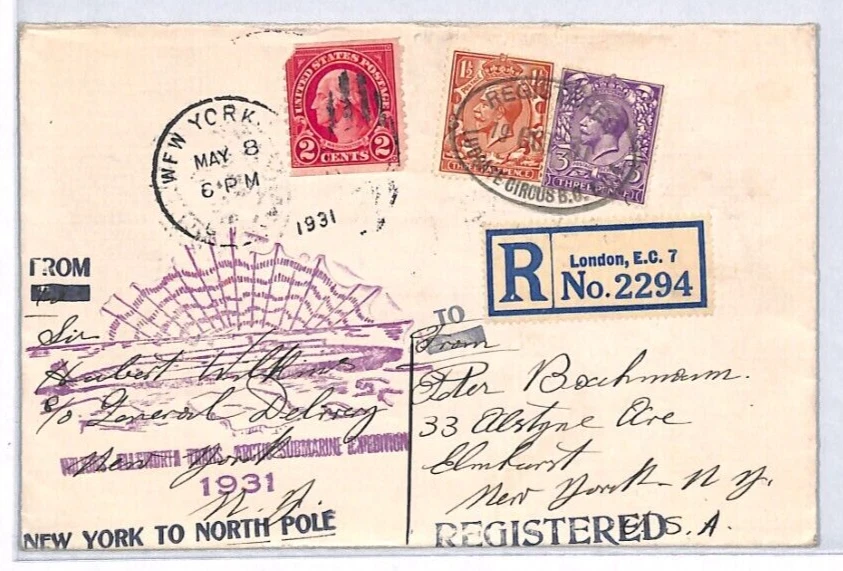 NEW YORK,
MAY 8
6 PM
1931
UNITED STATES POSTAGE
2 CENTS 2
1½
3
THREE PENCE
REGISTERED
19
LUDGATE CIRCUS B.O.
R
London, E.C. 7
No. 2294
FROM
Sir
Hubert Wilkins
c/o General Delivery
New York
N.Y.
WILKINS-ELLSWORTH TRANS-ARCTIC SUBMARINE EXPEDITION
1931
NEW YORK TO NORTH POLE
TO
From
Peter Bachmann.
33 Alstyne Ave
Elmhurst
New York - N.Y.
U.S.A.
REGISTERED